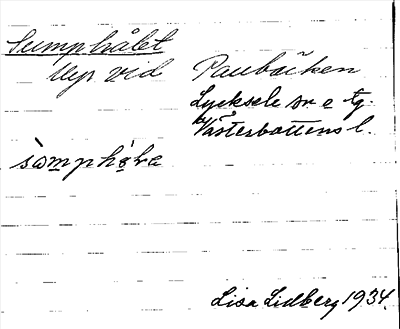 Sumphålet
Myr vid Paubäcken
Lycksele sn o tg.
Västerbottens l.
sòmphòla
Lisa Lidberg 1934.